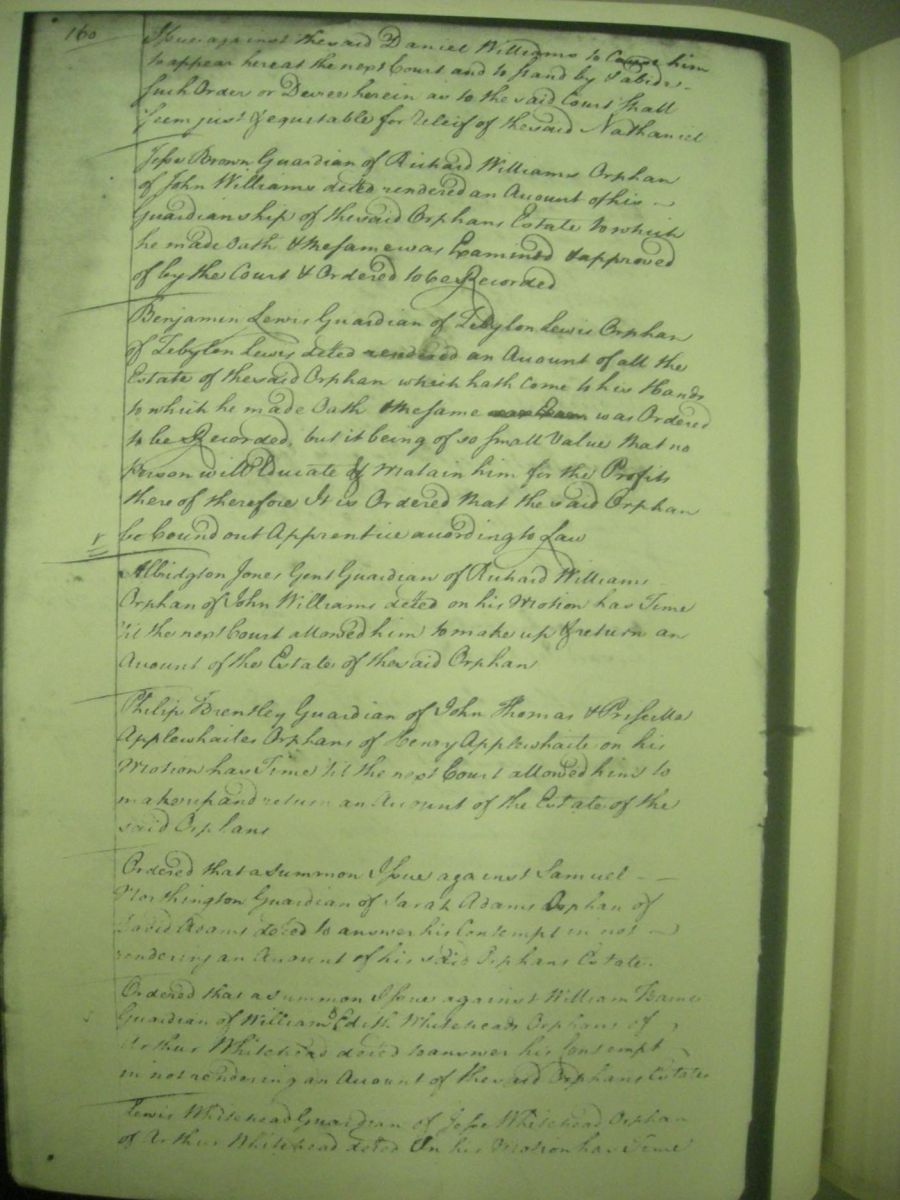 160
Issue against the said Daniel Williams to Cause him
to appear here at the next Court and to stand by & abide
such Order or Decree herein as to the said Court shall
seem just & equitable for Releif of the said Nathaniel
Jesse Brown Guardian of Richard Williams Orphan
of John Williams deced rendered an Account of his
Guardianship of the said Orphans Estate to which
he made Oath & the same was Examined & approved
of by the Court & Ordered to be Recorded
Benjamin Lewis Guardian of Zebylon Lewis Orphan
of Zebylon Lewis deced rendered an Account of all the
Estate of the said Orphan which hath Come to his Hands
to which he made Oath & the same was Ordered
to be Recorded, but it being of so small Value that no
Person will Educate & Matain him for the Profits
there of therefore It is Ordered that the said Orphan
be bound out Apprentice according to Law
Albridgton Jones Gent Guardian of Richard Williams
Orphan of John Williams deced on his Motion has Time
'til the next Court allowed him to make up & return an
Account of the Estate of the said Orphan
Philip Brentley Guardian of John Thomas & Prissilla
Applewhaites Orphans of Henry Applewhaite on his
Motion has Time 'til the next Court allowed him to
make up and return an Account of the Estate of the
said Orphans
Ordered that a summon Issue against Samuel
Northington Guardian of Sarah Adams Orphan of
David Adams deced to answer his Contempt in not
rendering an Account of his said Orphans Estate.
Ordered that a summon Issue against William Barnes
Guardian of William & Edith Whiteheads Orphans of
Arthur Whitehead deced to answer his Contempt
in not rendering an Account of the said Orphans Estates
Lewis Whitehead Guardian of Jesse Whitehead Orphan
of Arthur Whitehead deced On his Motion has Time